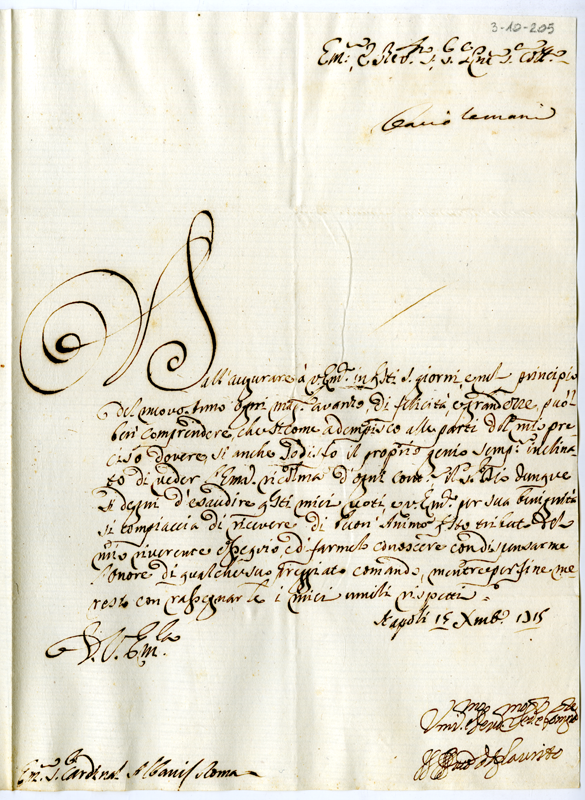 3-10-205
Em.e e Rev.
all'augurare à V. Em.a in q.sti S. giorni, e nel principio
del nuovo Anno ogni mag.r avanzo, di felicità e grandezze, può
ben comprendere, che sicome adempisco alle parti del mio pre
ciso dovere, si anche sodisfo il proprio genio semp.e inclina
to di veder l'Em.a V. ricolma d'ogni cont.o Il S. Iddio dunque
si degni d'esaudire q.sti miei voti, e V. Em.a per sua benignità
si compiaccia di ricevere di buon Animo q.sto tributo del
mio riverente ossequio, ed farmelo conoscere con dispensarme
l'onore di qualche suo preggiato comando, mentre per fine me
resto con rassegnarle i miei umili rispetti
Napoli 15 Xmb.e 1715
D. V. Em.a
Em. S. Cardinal Albani Roma